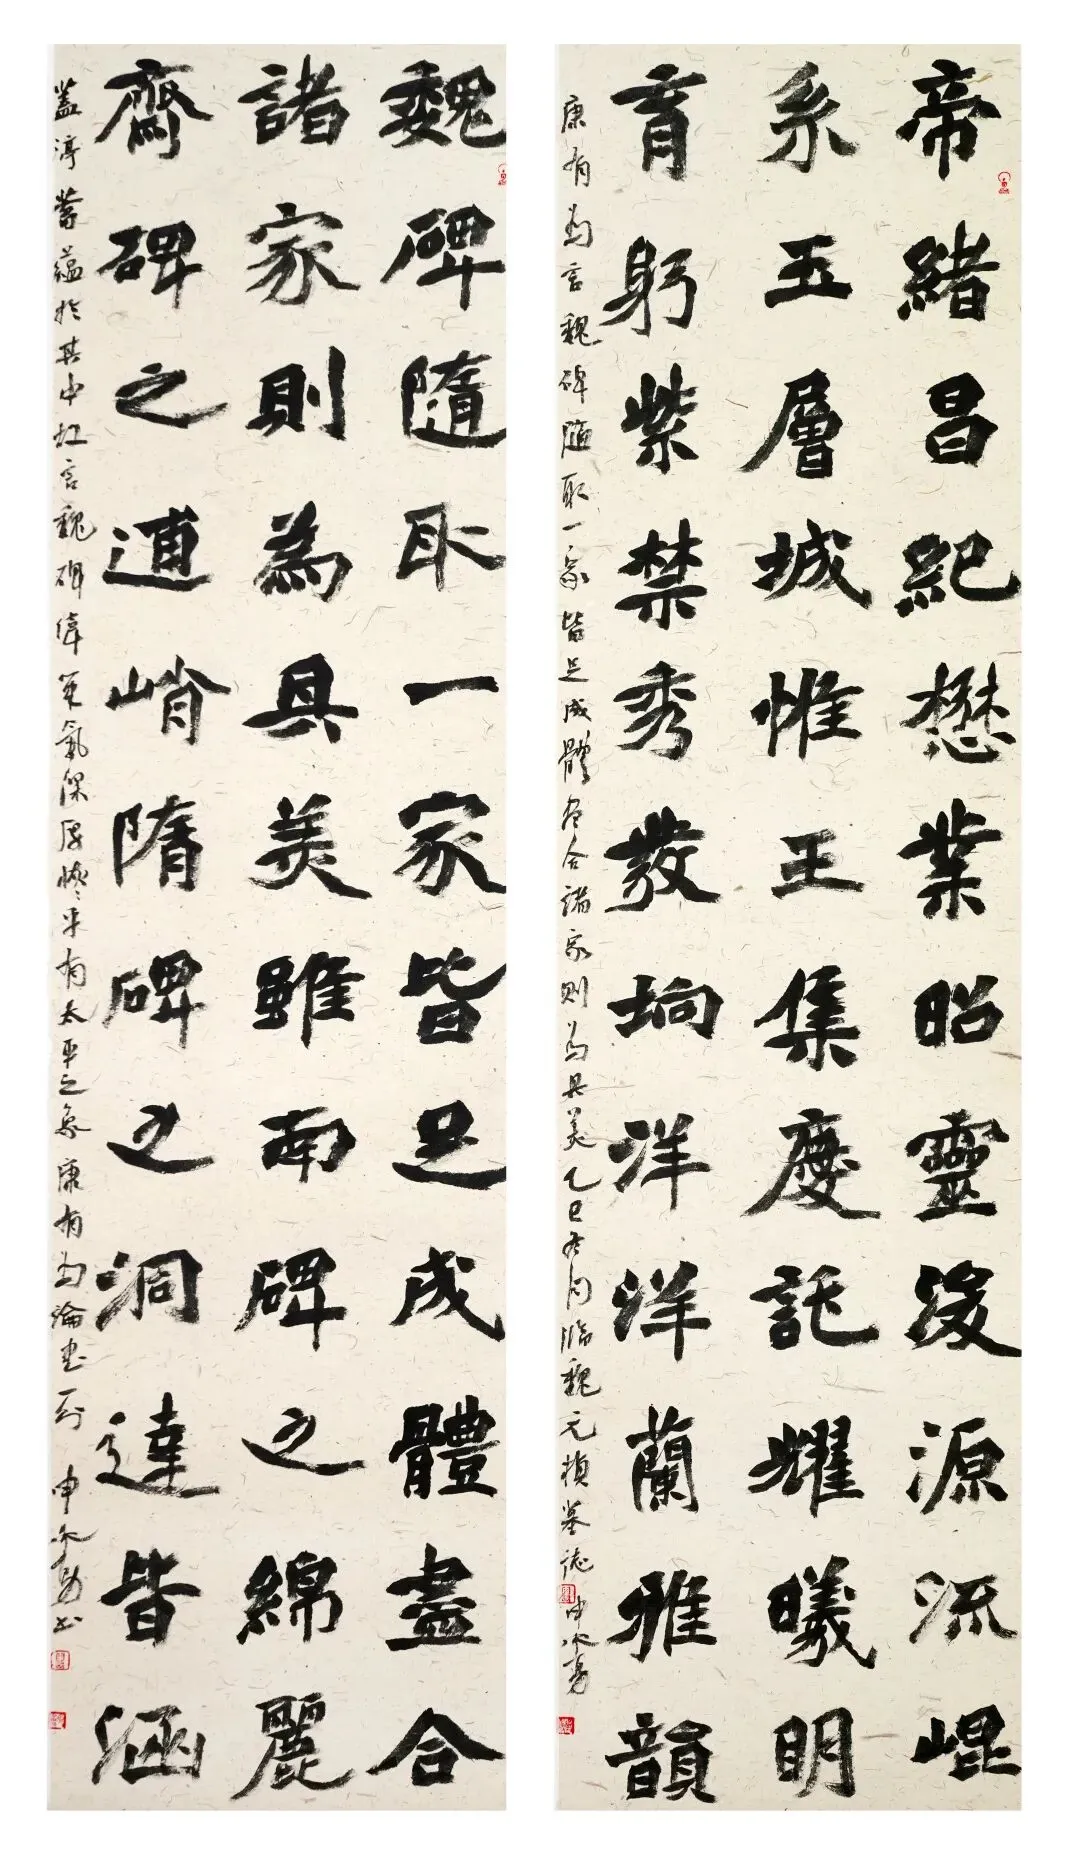 帝緒昌紀懋業昭靈浚源流崐
系玉層城惟王集慶託耀曦明
育躬紫禁秀發坰洋洋蘭雅韻
康有為言魏碑隨取一家皆足成體盡合諸家則為具美乙巳冬月臨魏元楨墓誌 申勇
魏碑隨取一家皆足成體盡合
諸家則為具美雖南碑之綿麗
齊碑之逋峭隋碑之洞達皆涵
蓋渟蓄蘊於其中故言魏碑偉英氣深厚恢乎有太平之象康有為論書一則 申勇書